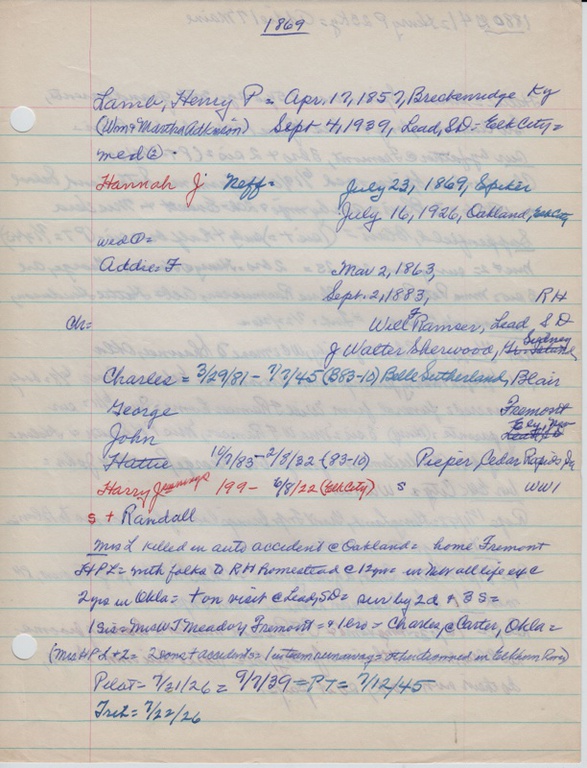 1869
Lamb, Henry P = Apr. 17, 1857, Breckenridge Ky
(Wm & Martha Adkinson) Sept 4, 1939, Lead, SD = Elk City =
med @ .
Hannah J Neff = July 23, 1869, Spiker
July 16, 1926, Oakland, Elk City
wed @ =
Addie F Mar 2, 1863,
Sept. 2, 1883, RH
Ch = Will F Ramser, Lead SD
J Walter Sherwood, Sydney
Charles = 3/29/81 - 7/7/45 (B83-10) Belle Sutherland, Blair
George Fremont
John Ely, Nev
Hattie 11/7/83 - 2/8/32 - (83-10) Pieper, Cedar Rapids, Ia
Harry Jennings 199 - 6/8/22 (Elk City) s WW1
s + Randall
Mrs L killed in auto accident @ Oakland = home Fremont
HPL = with folks to RH Homestead @ 12 yrs = in Neb all life exc
2 yrs in Okla = + on visit @ Lead, SD = sur by 2 d + 3 s =
1 sis = Mrs W J Meador, Fremont = + 1 bro = Charles, @ Carter, Okla =
(Mrs HPL + L = 2 sons + accidents = 1 in team runaway = other drowned in Elkhorn River)
Pilot = 7/21/26 = 9/7/39 = PT = 7/12/45
Trib = 7/22/26